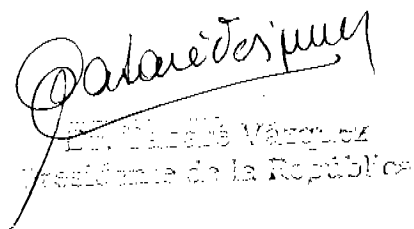 Dr. Tabaré Vázquez
Presidente de la República